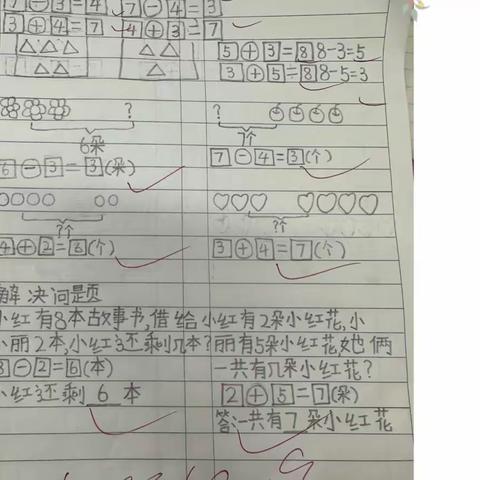 7-3=4 7-4=3
3+4=7 4+3=7
5+3=8 8-3=5
3+5=8 8-5=3
? ?
6朵 ?个
6-3=3(朵) 7-4=3(个)
?个 ?个
4+2=6(个) 3+4=7(个)
解决问题
小红有8本故事书,借给 小红有2朵小红花,小
小丽2本,小红还剩几本? 丽有5朵小红花她俩
8-2=6(本) 一共有几朵小红花?
小红还剩 6 本 2+5=7(朵)
答:一共有7朵小红花